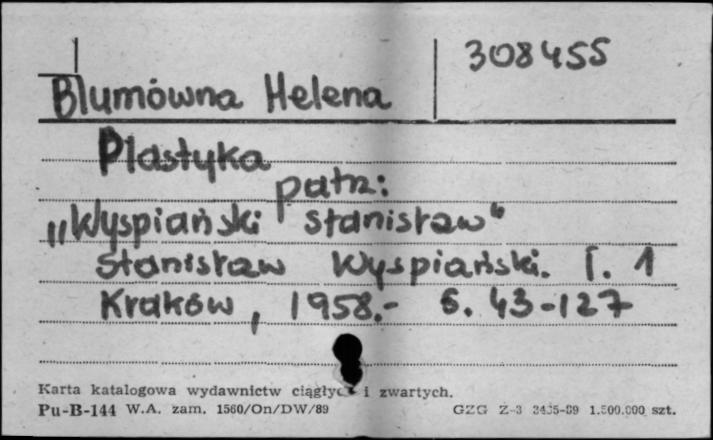 308455
Blumówna Helena
Plastyka
patrz:
„Wyspiański Stanisław"
Stanisław Wyspiański. T. 1
Kraków, 1958.- S. 43-127
Karta katalogowa wydawnictw ciągłych i zwartych.
Pu-B-144 W.A. zam. 1560/On/DW/89 GZG Z-3 3435-89 1.500.000 szt.